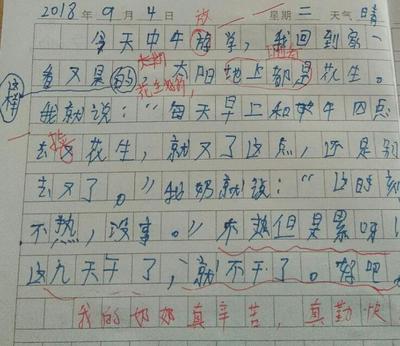 2018年9月4日 星期二 天气晴
放
今天中午放学，我回到家一
看又是 太阳地上都是花生。
这样
花生奶奶，
我就说：“每天早上和中午四点
去又花生，就又了这点，还是别
摘
去又了。”奶奶就说：“这时刻
不热，没事。”不热但是累呀！
这几天干了，就不干了。好吧
我的奶奶真辛苦，真勤快